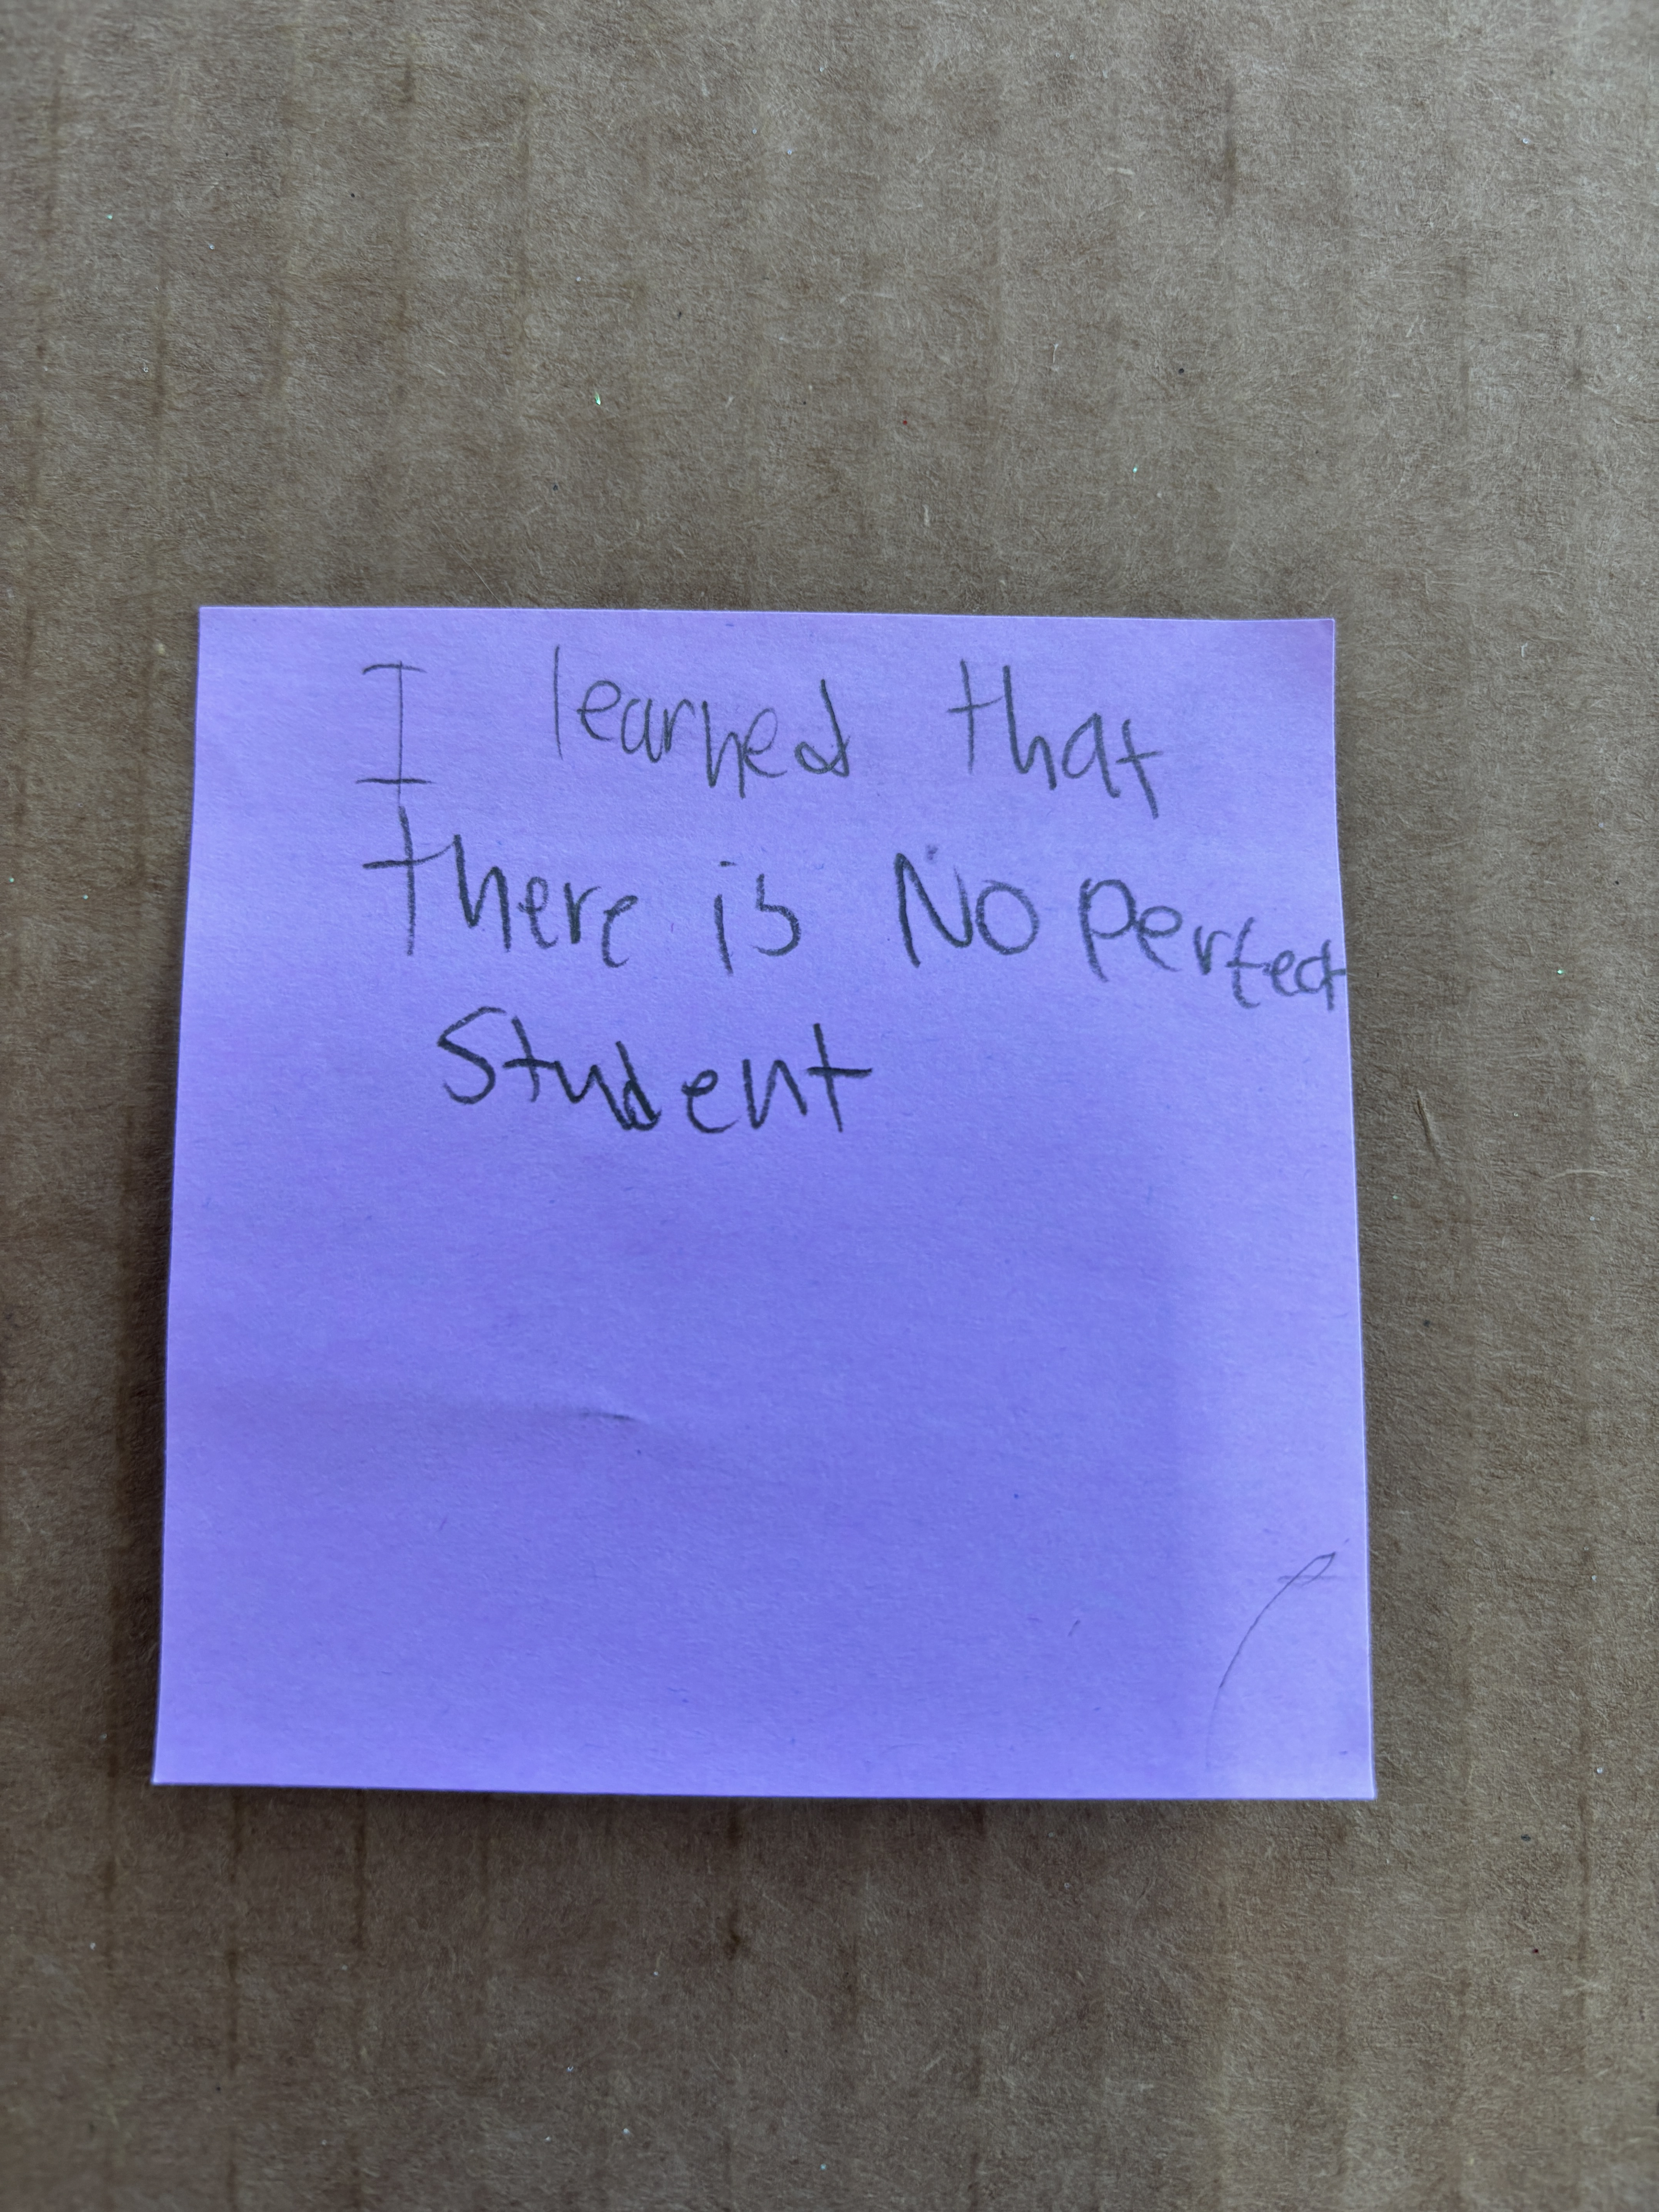 I learned that
there is No perfect
Student